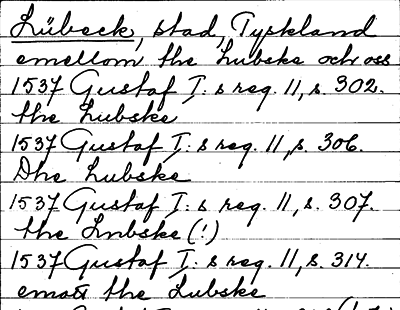 Lübeck, stad, Tyskland
emellom the Lubske och oss
1537 Gustaf I: s reg. 11, s. 302.
the Lubske
1537 Gustaf I: s reg. 11, s. 306.
Dhe Lubske
1537 Gustaf I: s reg. 11, s. 307.
the Lnbske (!)
1537 Gustaf I: s reg. 11, s. 314.
emott the Lubske